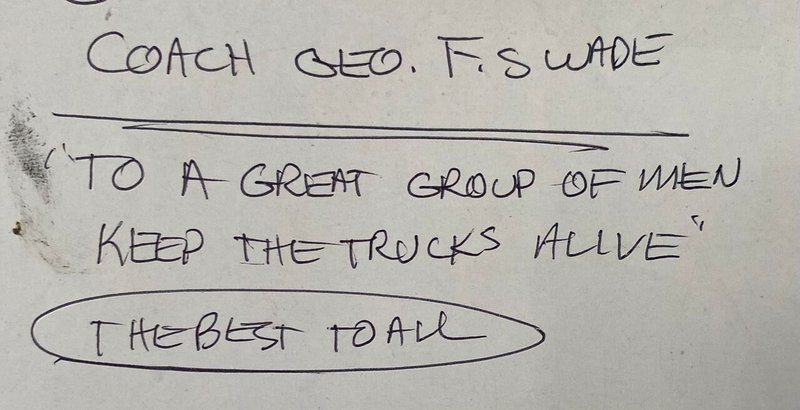 COACH GEO. F. SWADE
"TO A GREAT GROUP OF MEN
KEEP THE TRUCKS ALIVE"
THE BEST TO ALL